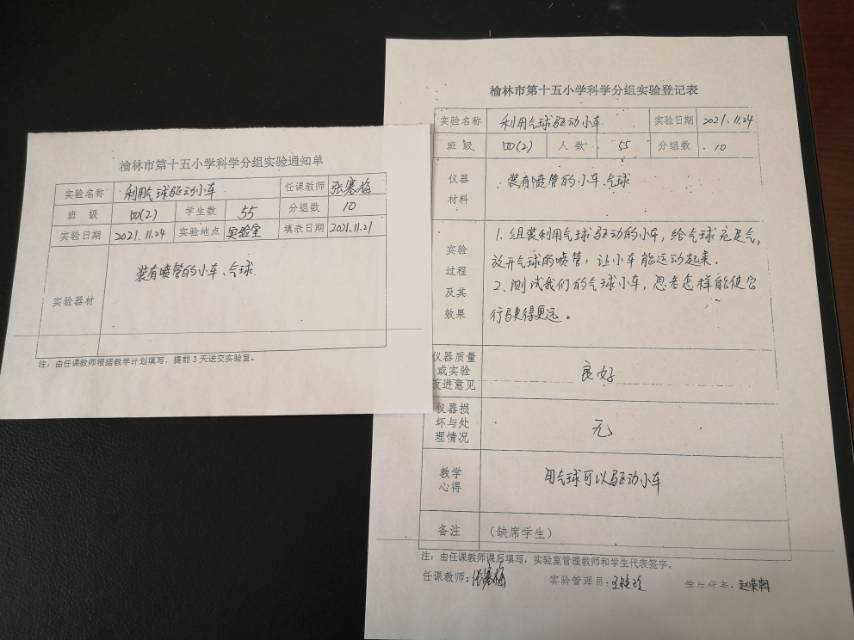 榆林市第十五小学科学分组实验通知单
实验名称 利用气球驱动小车 任课教师 张寒梅
班 级 四(2) 学生数 55 分组数 10
实验日期 2021.11.24 实验地点 实验室 填表日期 2021.11.21
实验器材 装有喷管的小车、气球
注：由任课教师根据教学计划填写，提前3天送交实验室。
榆林市第十五小学科学分组实验登记表
实验名称 利用气球驱动小车 实验日期 2021.11.24
班 级 四(2) 人 数 55 分组数 10
仪器
材料
装有喷管的小车、气球
实验
过程
及其
效果
1. 组装利用气球驱动的小车，给气球充足气，
放开气球的喷管，让小车能运动起来。
2. 测试我们的气球小车，思考怎样能使它
行驶得更远。
仪器质量
或实验
改进意见
良好
仪器损
坏与处
理情况
无
教学
心得
用气球可以驱动小车
备注 (缺席学生)
注：由任课教师课后填写，实验室管理教师和学生代表签字。
任课教师：张寒梅 实验管理员： 学生代表：